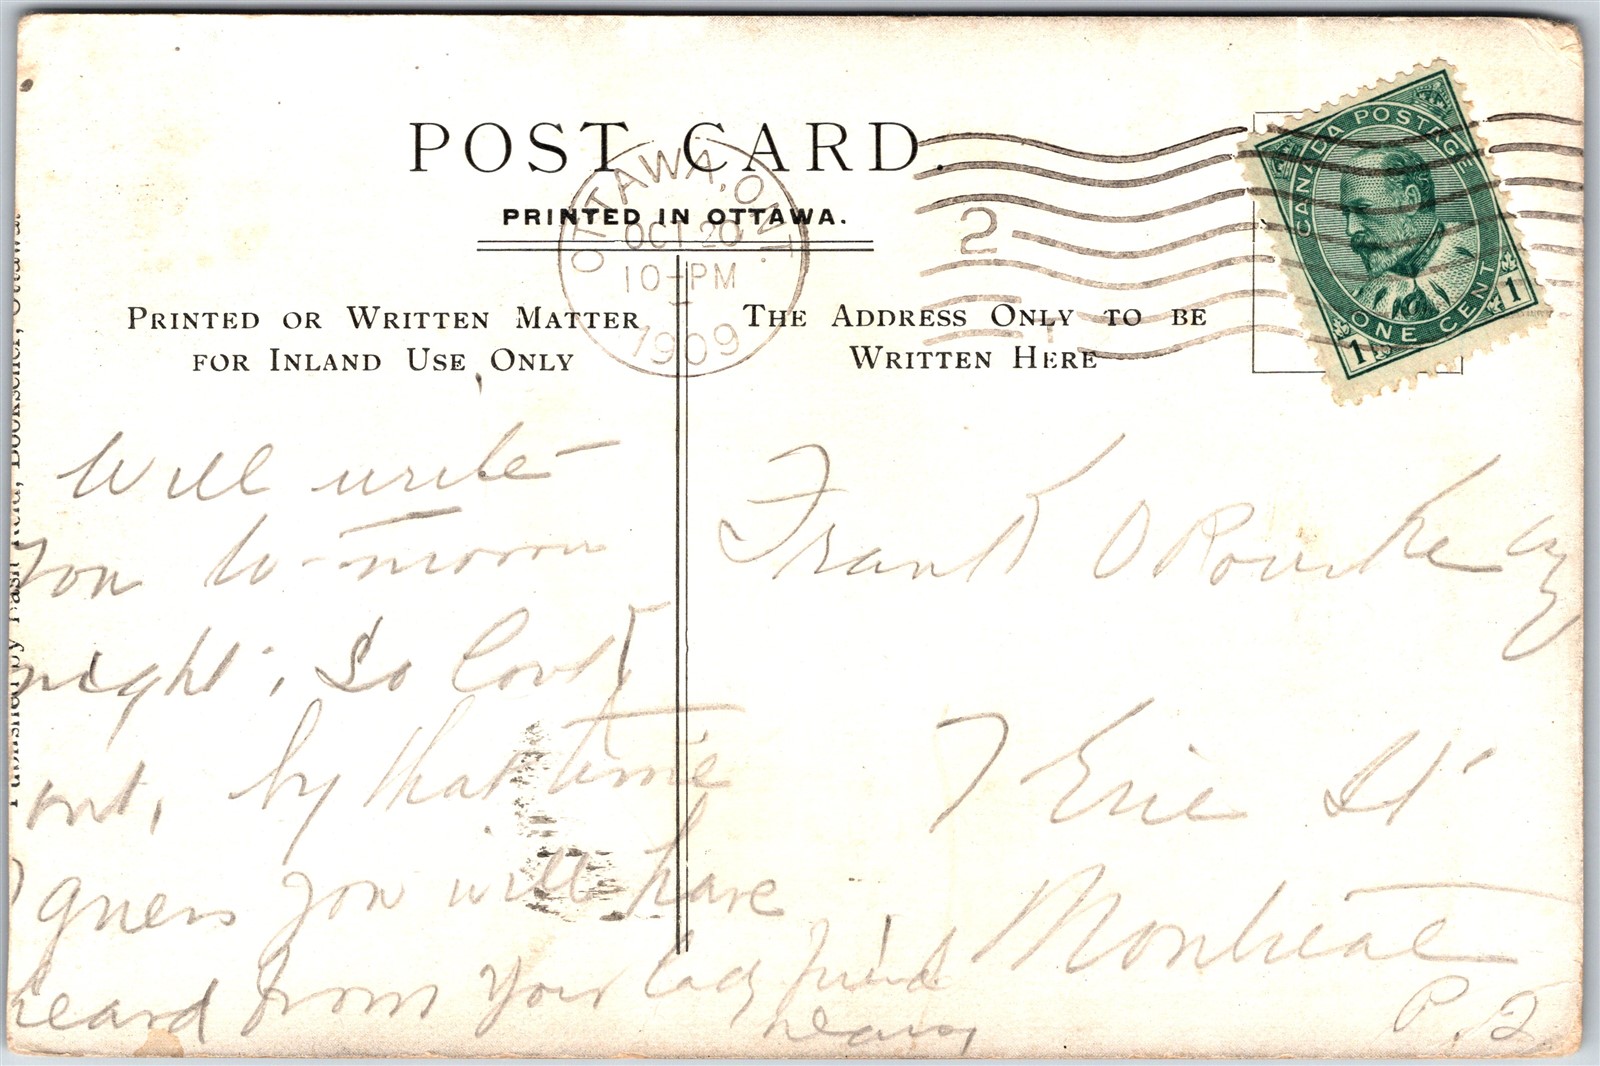 POST CARD.
PRINTED IN OTTAWA.
OTTAWA, ONT.
OCT 20
10-PM
1909
2
CANADA POSTAGE
ONE CENT
1 1
PRINTED OR WRITTEN MATTER
FOR INLAND USE ONLY
THE ADDRESS ONLY TO BE
WRITTEN HERE
Published by Nash Reid, Bookseller, Ottawa.
Will write
you to-morrow
night; So
out, by that time
I guess you will have
heard from your lady friend
Frank O Rourke
7 Erie St
Montreal
P.Q.